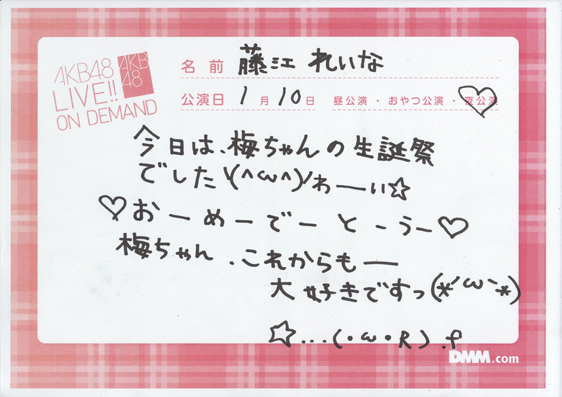 AKB48
LIVE!!
ON DEMAND
AKB
48
名前 藤江れいな
公演日 1月10日 昼公演・おやつ公演・夜公演
今日は、梅ちゃんの生誕祭
でした\(^ω^)/わーい☆
♡おーめーでーとーうー♡
梅ちゃん、これからもー
大好きですっ(*´ω`*)
☆...(・ω・R).f
DMM.com